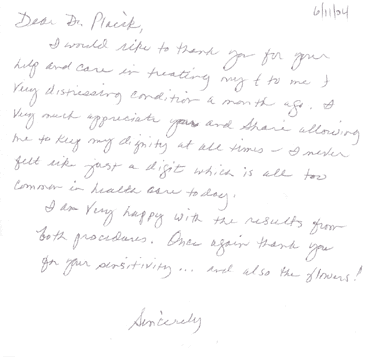 6/11/04
Dear Dr.
I would like to thank you for your
help and care in treating my (to me)
very distressing condition a month ago. I
very much appreciate you and allowing
me to keep my dignity at all times - I never
felt like just a digit which is all too
common in health care today.
I am very happy with the results from
both procedures. Once again thank you
for your sensitivity... and also the flowers!
Sincerely